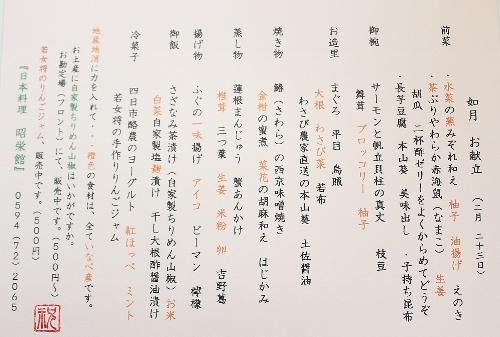 如月 お献立 (二月 二十三日)
前菜
・水菜の蒸みぞれ和え 柚子 油揚げ えのき
・茶ぶりやわらか赤海鼠(なまこ) 生姜
胡瓜 二杯酢ゼリーをよくからめてどうぞ
・長芋豆腐 本山葵 美味出し ・子持ち昆布
御椀
サーモンと帆立貝柱の真丈 枝豆
舞茸 ブロッコリー 柚子
お造里
まぐろ 平目 烏賊
大根 わさび菜 若布
わさび農家直送の本山葵 土佐醤油
焼き物
鰆(さわら)の西京味噌焼き
金柑の蜜煮 菜花の胡麻和え はじかみ
蒸し物
蓮根まんじゅう 蟹あんかけ
椎茸 三つ葉 生姜 米粉 卵 吉野葛
揚げ物
ふぐの一味揚げ アイコ ピーマン 檸檬
御飯
さざなみ茶漬け(自家製ちりめん山椒)お米
白菜自家製塩麹漬け 干し大根酢醤油漬け
冷菓子
四日市酪農のヨーグルト 紅ほっぺ ミント
若女将の手作りりんごジャム
地産地消に力を入れて・・・橙色の食材は、全ていなべ産です。
お土産に自家製ちりめん山椒はいかがですか。
お勘定場(フロント)にて、販売中です。(500円~)
若女将のりんごジャム、販売中です。(500円)
『日本料理 昭栄館』 0594(72)2065
祝